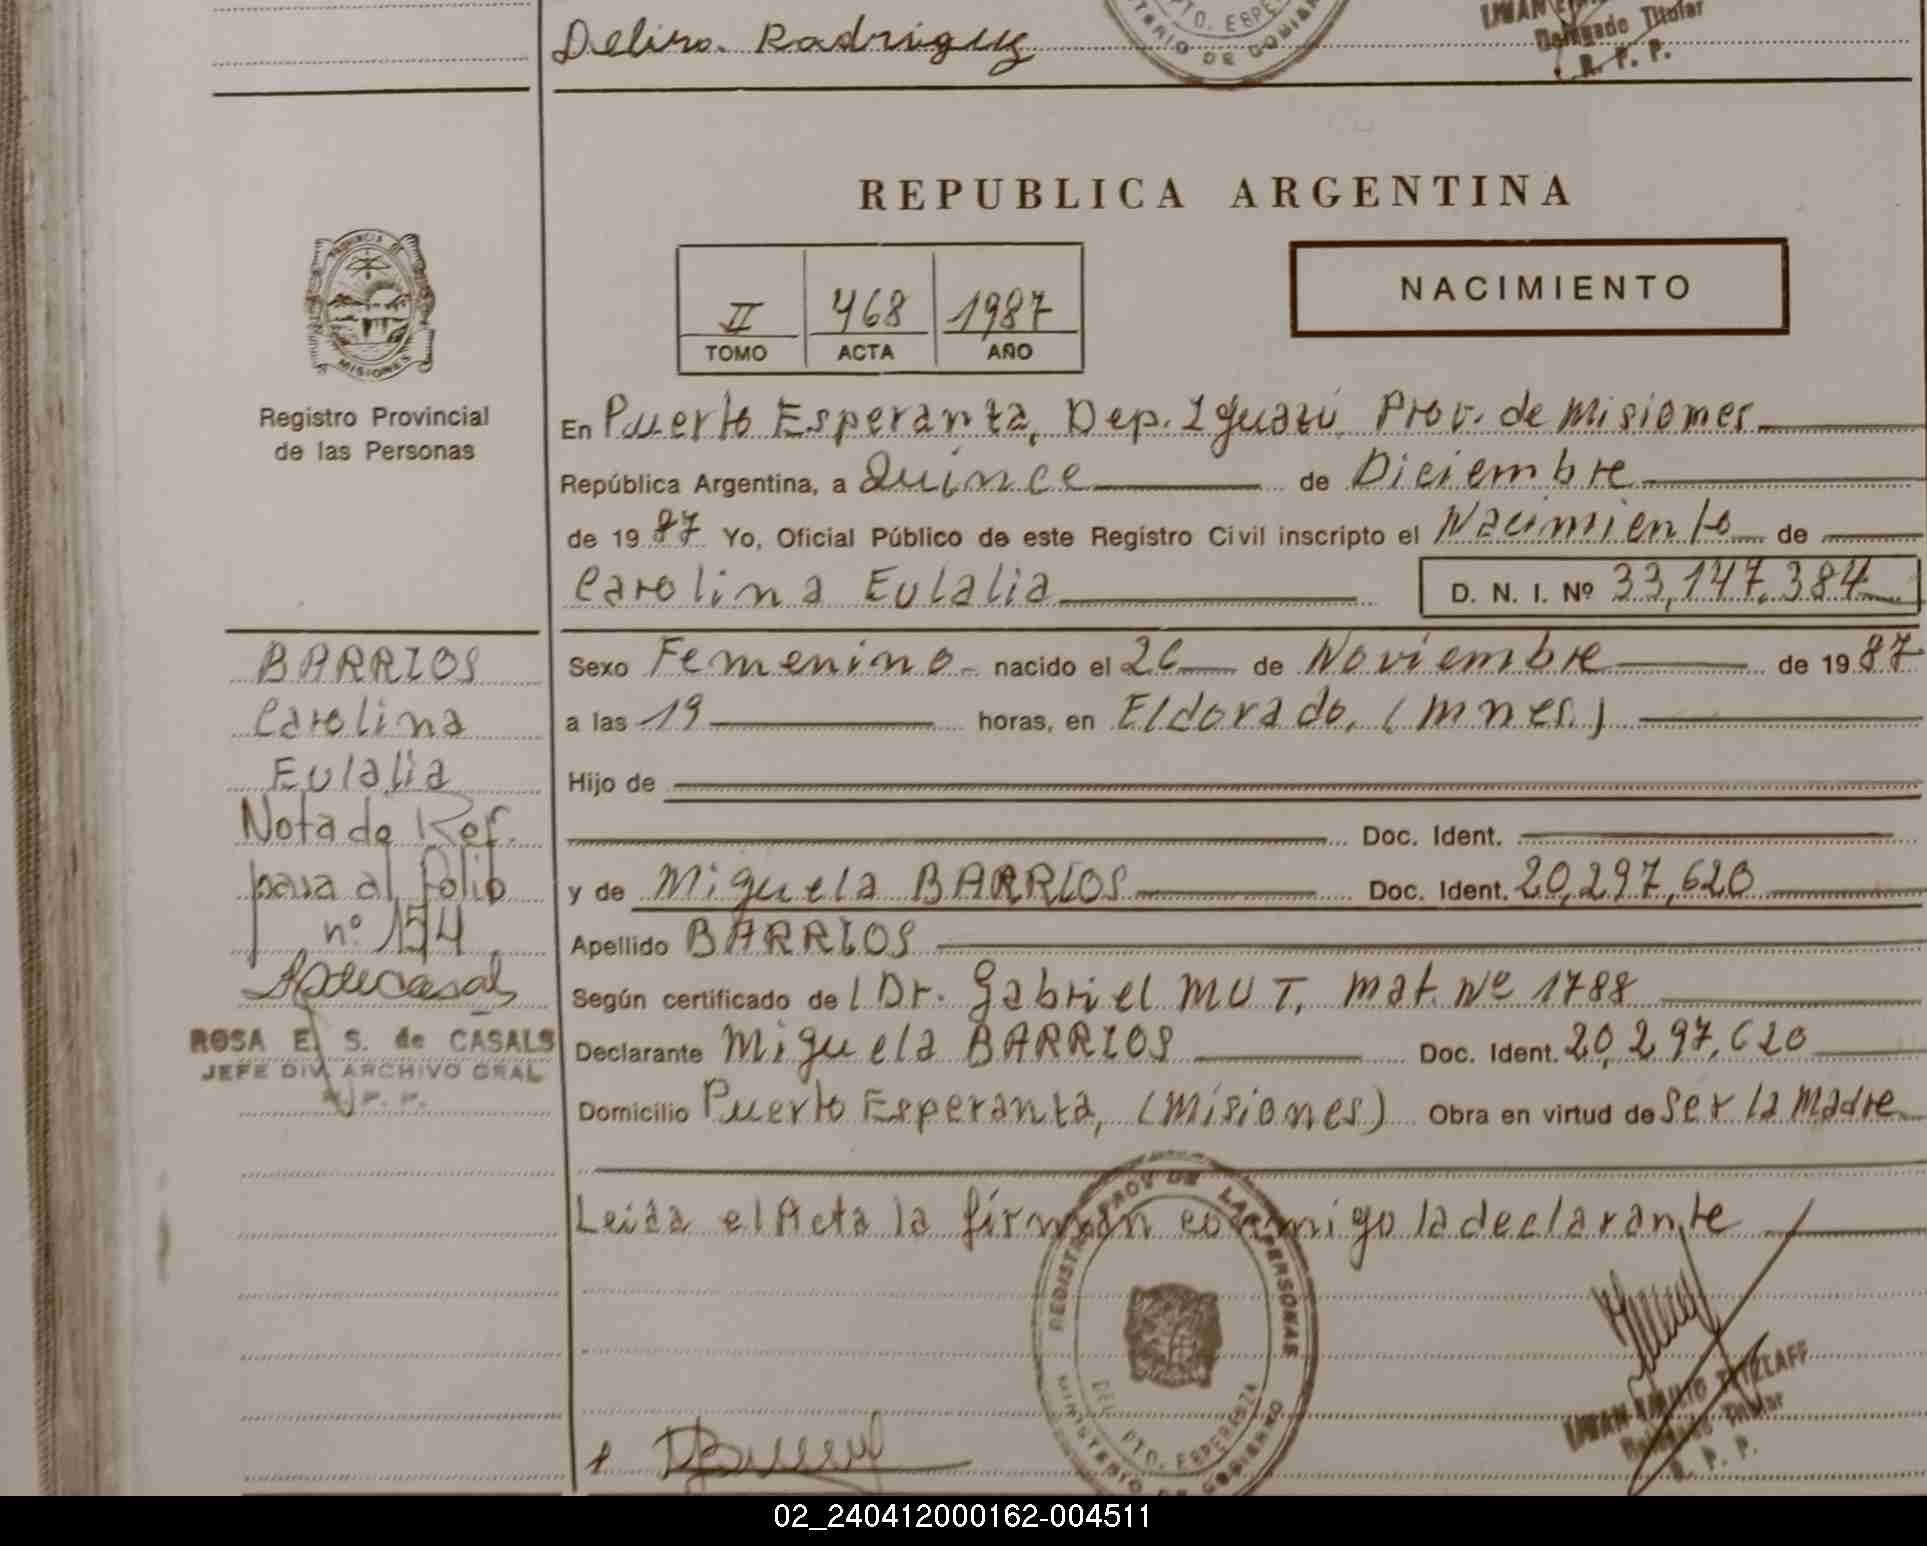 Delira. Rodriguez
PTO. ESPE
DE GOBIER
Delegado Titular
R. P. P.
REPUBLICA ARGENTINA
PROVINCIA DE
MISIONES
II 468 1987
TOMO ACTA AÑO
NACIMIENTO
Registro Provincial
de las Personas
En Puerto Esperanza, Dep. Iguazú Prov. de Misiones
República Argentina, a Quince de Diciembre
de 1987 Yo, Oficial Público de este Registro Civil inscripto el Nacimiento de
Carolina Eulalia D. N. I. Nº 33,147.384
BARRIOS
Carolina
Eulalia
Nota de Ref.
pasa al folio
nº 154
ROSA E. S. de CASALS
JEFE DIV. ARCHIVO GRAL
R. P. P.
Sexo Femenino nacido el 26 de Noviembre de 1987
a las 19 horas, en Eldorado, (Mnes.)
Hijo de
Doc. Ident.
y de Miguela BARRIOS Doc. Ident. 20,297,620
Apellido BARRIOS
Según certificado del Dr. Gabriel MUT, Mat. Nº 1788
Declarante Miguela BARRIOS Doc. Ident. 20,297,620
Domicilio Puerto Esperanza, (Misiones) Obra en virtud de Ser la Madre
Leida el Acta la firman conmigo la declarante
REGISTRO PROV DE LAS PERSONAS
DEL PTO. ESPERANZA
MINISTERIO DE GOBIERNO
Delegado Titular
R. P. P.
02_240412000162-004511